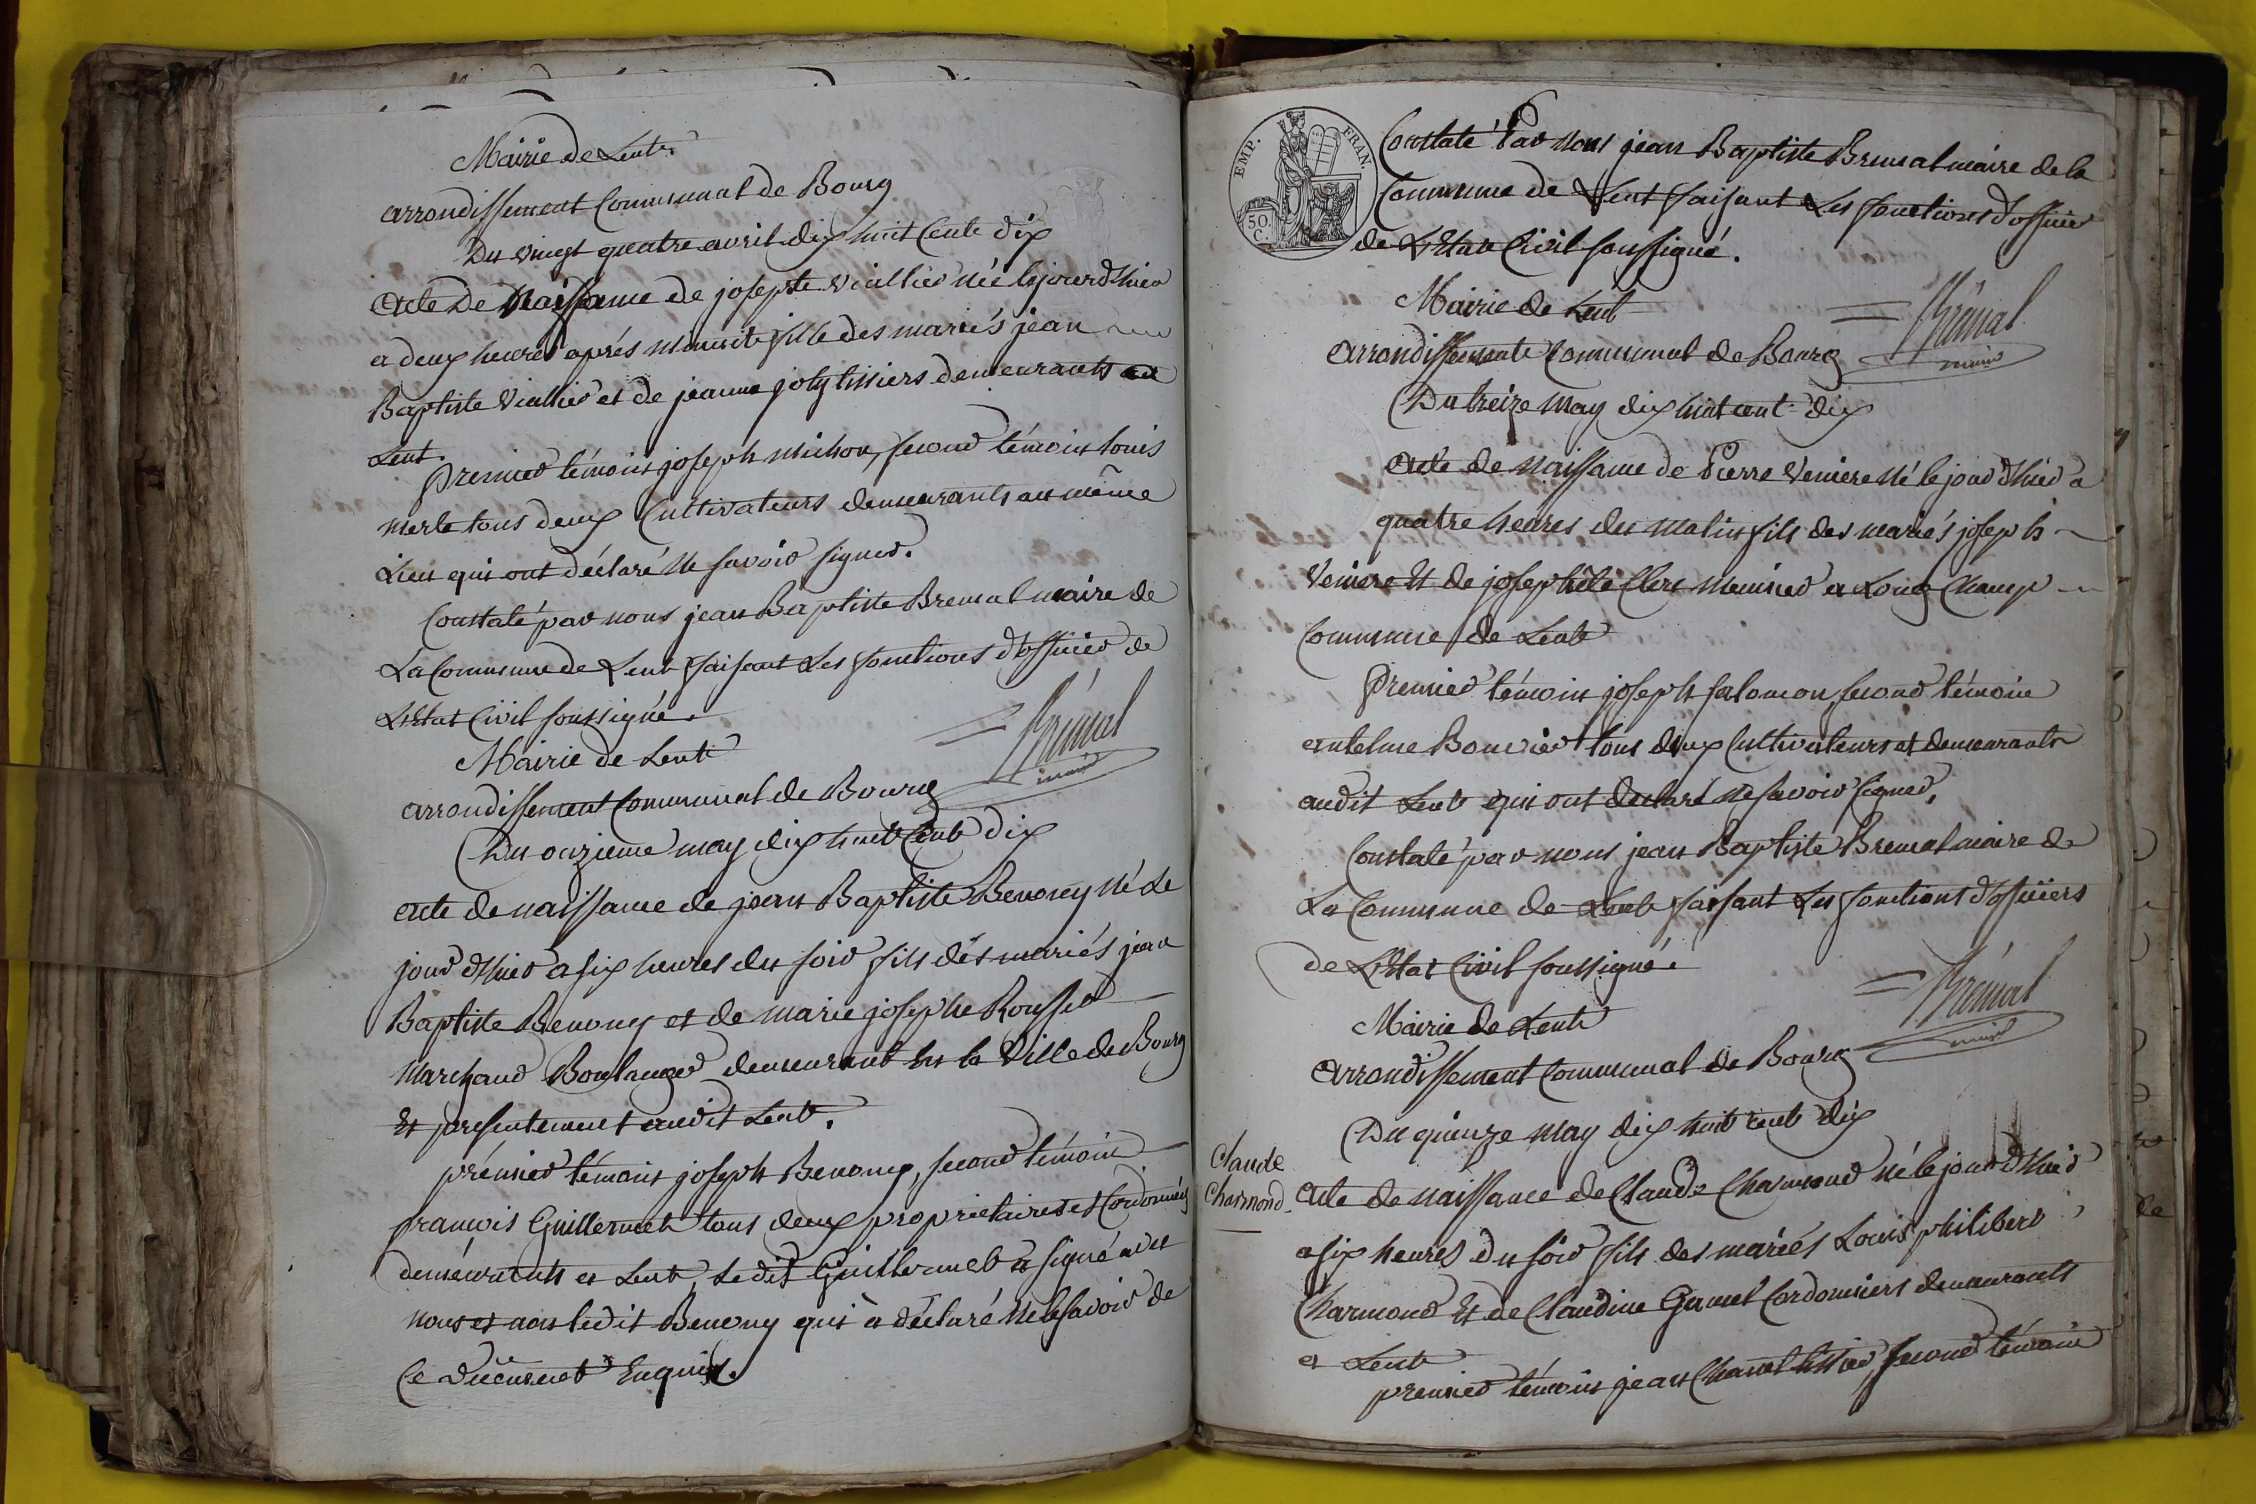 Mairie de Lent
arrondissement Communal de Bourg
Du vingt quatre avril dix huit Cent dix
acte de Naissance de josepte Viallier née le jour d'hier
a deux heures aprés minuit fille des mariés jean
Baptiste Viallier et de jeanne joly tissiers demeurants a
Lent.
Premier témoin joseph Michon, second témoin louis
Merle tous deux Cultivateurs demeurants au même
Lieu qui ont déclaré Ne savoir signer.
Constaté par nous jean Baptiste Bremal maire de
La Commune de Lent faisant Les fonctions d'officier de
L'Etat Civil soussigné.
Brémal
maire
Mairie de Lent
arrondissement Communal de Bourg
Du onzieme may dix huit Cent dix
acte de naissance de jean Baptiste Benony né Le
jour d'hier a six heures du soir fils dés mariés jean
Baptiste Benony et de marie josephe Rousset
Marchand Boulanger demeurant En la Ville de Bourg
Et presentement audit Lent.
prémier témoin joseph Benony, second témoin
francois Guillermet tous deux proprietaires et Cordonniers
demeurants a Lent, Ledit Guillermet a signé avec
nous et non ledit Benony qui à déclaré Ne le savoir de
Ce duement Enquis.
EMP. FRAN.
50.
C.
Constaté Par Nous jean Baptiste Bremal maire de la
Commune de Lent faisant Les fonctions d'officier
de L'Etat Civil soussigné.
Brémal
maire
Mairie de Lent
arrondissement Communal de Bourg
Du treize May dix huit cent dix
acte de Naissance de Pierre Veniere Né le jour d'hier a
quatre heures du matin fils des mariés joseph
Veniere Et de josephete Clerc Meunier a Long Champ
Commune de Lent
Premier témoin joseph salomon, second témoin
antelme Bouvier tous deux Cultivateurs et demeurants
audit Lent qui ont declaré ne savoir signer.
Constaté par nous jean Baptiste Bremal maire de
La Commune de Lent faisant Les fonctions d'officiers
de L'Etat Civil soussigné.
Brémal
maire
Mairie de Lent
arrondissement Communal de Bourg
Du quinze May dix huit cent dix
Claude
Charmond
acte de naissance de Claude Charmond né le jour d'hier
a six heures du soir fils des mariés Louis philibert
Charmond Et de Claudine Gamel Cordonniers demeurants
a Lent
premier témoin jean Chanel tissier, second témoin